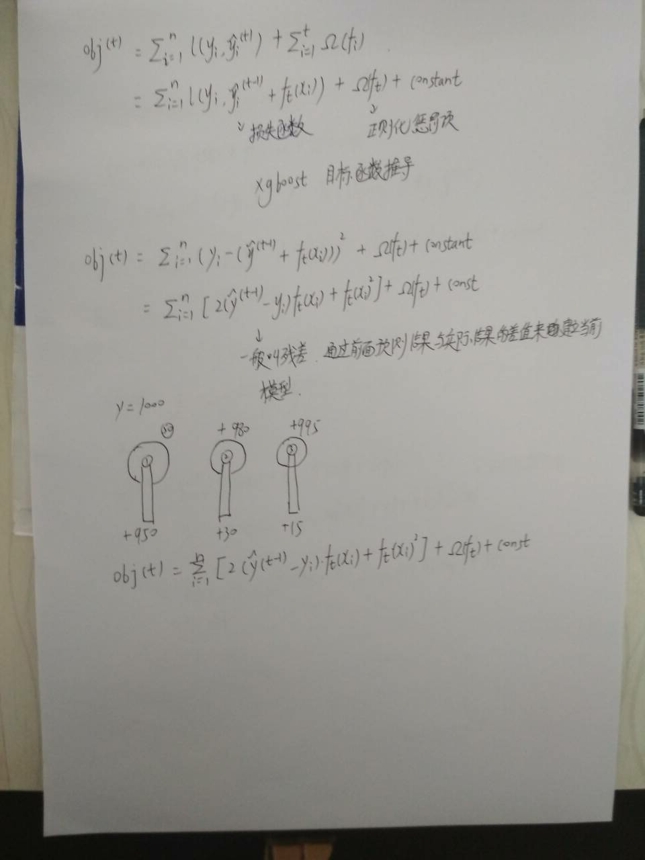 obj(t) = Σᵢ₌₁ⁿ l(yᵢ, ŷᵢ⁽ᵗ⁾) + Σᵢ₌₁ᵗ Ω(fᵢ)
= Σᵢ₌₁ⁿ l(yᵢ, ŷᵢ⁽ᵗ⁻¹⁾ + fₜ(xᵢ)) + Ω(fₜ) + constant
损失函数 正则化惩罚项
xgboost 目标函数推导
obj(t) = Σᵢ₌₁ⁿ (yᵢ-(ŷ⁽ᵗ⁻¹⁾ + fₜ(xᵢ)))² + Ω(fₜ) + constant
= Σᵢ₌₁ⁿ [2(ŷ⁽ᵗ⁻¹⁾ - yᵢ)fₜ(xᵢ) + fₜ(xᵢ)²] + Ω(fₜ) + const
一般叫残差. 通过前面预测结果与实际结果的差值来建立当前
模型.
y = 1000
50 +980 +995
1 2 3
+950 +30 +15
obj(t) = Σᵢ₌₁ⁿ [2(ŷ(t-1) - yᵢ)·fₜ(xᵢ) + fₜ(xᵢ)²] + Ω(fₜ) + const